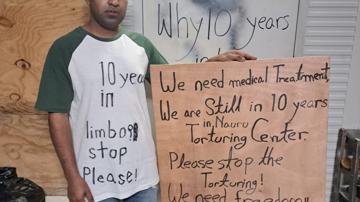 Why 10 years
in
10 yea
in
limbo98
stop
Please!
We need medical Treatment
We are Still in 10 years
in Nauru
Torturing Center.
Please stop the
Torturing!
We need